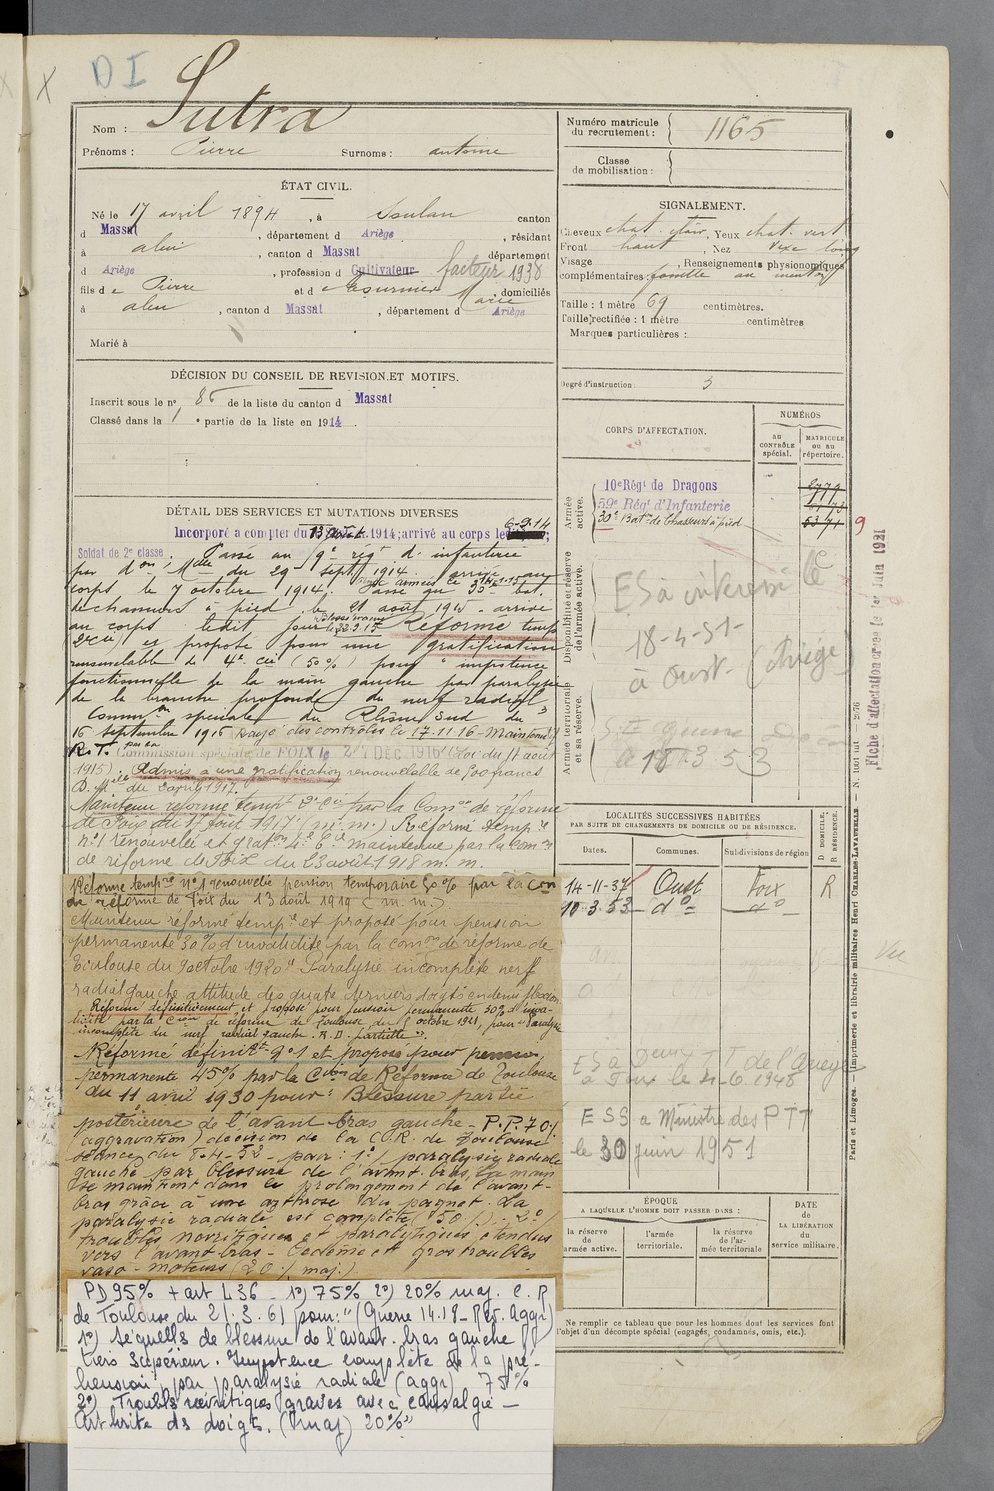 X
X
D I
Nom : Sutra
Prénoms : Pierre Surnoms : antoine
Numéro matricule
du recrutement : 1165
Classe
de mobilisation :
ÉTAT CIVIL.
Né le 17 avril 1894, à Soulan canton
d Massat, département d Ariège, résidant
à aleu, canton d Massat département
d Ariège, profession d Cultivateur facteur 1938
fils de Pierre et de Marie, domiciliés
à aleu, canton d Massat, département d Ariège
Marié à
DÉCISION DU CONSEIL DE REVISION ET MOTIFS.
Inscrit sous le n° 86 de la liste du canton d Massat
Classé dans la 1e partie de la liste en 1914.
DÉTAIL DES SERVICES ET MUTATIONS DIVERSES
Incorporé a compter du 13 1914; arrivé au corps le 6-9-14;
Soldat de 2e classe. Passé au 9e reg t d'infanterie
par d on Melle du 29 sept 1914. arrivé au
corps le 7 octobre 1914. Passé au 30e bat.
de chasseurs à pied le 21 août 1915 - arrivé
au corps ledit jour. Réformé temp
et proposé pour une gratification
renouvelable de 4e cie (50%) pour "impotence
fonctionnelle de la main gauche par paralysie
de la branche profonde du nerf radial"
Comm on spéciale du Rhône Sud du
16 septembre 1916 Rayé des contrôles le 17.11.16 - Maintenu
R.T. par la Commission spéciale de FOIX le 27 DEC 1916 (Loi du 17 août
1915). Admis a une gratification renouvelable de 500 francs
D. Mlle du 3 avril 1917.
Maintenu réformé temp re 2e Cie par la Com on de réforme
de Foix du 4 août 1917 (m. m.) Réformé temp re
n°1 renouvelée et grat on 4e C ie maintenue par la Com on
de réforme de Foix du 23 août 1918 m. m.
Réforme temp re n°1 renouvelée pension temporaire 30% par la Con
de réforme de Foix du 13 août 1919 (m. m.).
Maintenu réformé temp re et proposé pour pension
permanente 30% d'invalidité par la com on de réforme de
Toulouse du 9 octobre 1920 "Paralysie incomplète nerf
radial gauche attitude des quatre derniers doigts en demi flexion
Réformé définitivement et proposé pour pension permanente 30% d'inva-
lidité par la C on de réforme de Toulouse du octobre 1921, pour "Paralysie
incomplète du nerf radial gauche. R.D. partielle".
Réformé définit t n°1 et proposé pour pension
permanente 45% par la C on de Réforme de Toulouse
du 11 avril 1930 pour: Blessure partie
postérieure de l'avant bras gauche - P.P. 70%
aggravation) décision de la C.R. de Toulouse
séance du 8-4-52 - pour: 1°/ paralysie radiale
gauche par blessure de l'avant-bras, la main
se maintient dans le prolongement de l'avant-
bras grâce à une arthrose du poignet. La
paralysie radiale est complète (50%) - 2°/
troubles névritiques et paralytiques étendus
vers l'avant-bras - Oedème et gros troubles
vaso-moteurs (20% maj.)
PD 95% + art L36 - 1°) 75% 2°) 20% maj. C.R
de Toulouse du 21.3.61 pour: "(Guerre 14.18 - Rev. Aggr)
1°) Séquelles de blessure de l'avant-bras gauche
tiers supérieur. Impotence complète de la pré-
hension, par paralysie radiale (aggr) 75%
2°) Troubles névritiques graves avec causalgie -
Arthrite des doigts. (Imaj) 20%"
SIGNALEMENT.
Cheveux chat. clair, Yeux chat. vert
Front haut, Nez Vexe long
Visage, Renseignements physionomiques
complémentaires fossette au menton
Taille : 1 mètre 69 centimètres.
Taille rectifiée : 1 mètre centimètres
Marques particulières :
Degré d'instruction : 3
CORPS D'AFFECTATION.
NUMÉROS
au
CONTRÔLE
spécial.
MATRICULE
ou au
répertoire.
Armée
active.
10e Régt de Dragons
59e Régt d'Infanterie
30e Baton de Chasseurs à pied 5371
9
Disponibilité et réserve
de l'armée active.
18-4-51-
à Oust (Ariège)
Armée territoriale
et sa réserve.
le 18.3.53
Fiche d'affectation créée le 1er Juin 1921
LOCALITÉS SUCCESSIVES HABITÉES
PAR SUITE DE CHANGEMENTS DE DOMICILE OU DE RÉSIDENCE.
Dates. Communes. Subdivisions de région D DOMICILE. R RÉSIDENCE.
14-11-37 Oust Foix R
10-3-53 - d° - d° -
Vu
à Foix le 4-6 1948
ESS a Ministre des PTT
le 30 juin 1951
ÉPOQUE
A LAQUELLE L'HOMME DOIT PASSER DANS :
la réserve
de
l'armée active.
l'armée
territoriale.
la réserve
de l'ar-
mée territoriale
DATE
de
LA LIBÉRATION
du
service militaire.
Ne remplir ce tableau que pour les hommes dont les services font
l'objet d'un décompte spécial (engagés, condamnés, omis, etc.).
Paris et Limoges. — Imprimerie et librairie militaires Henri CHARLES-LAVAUZELLE —